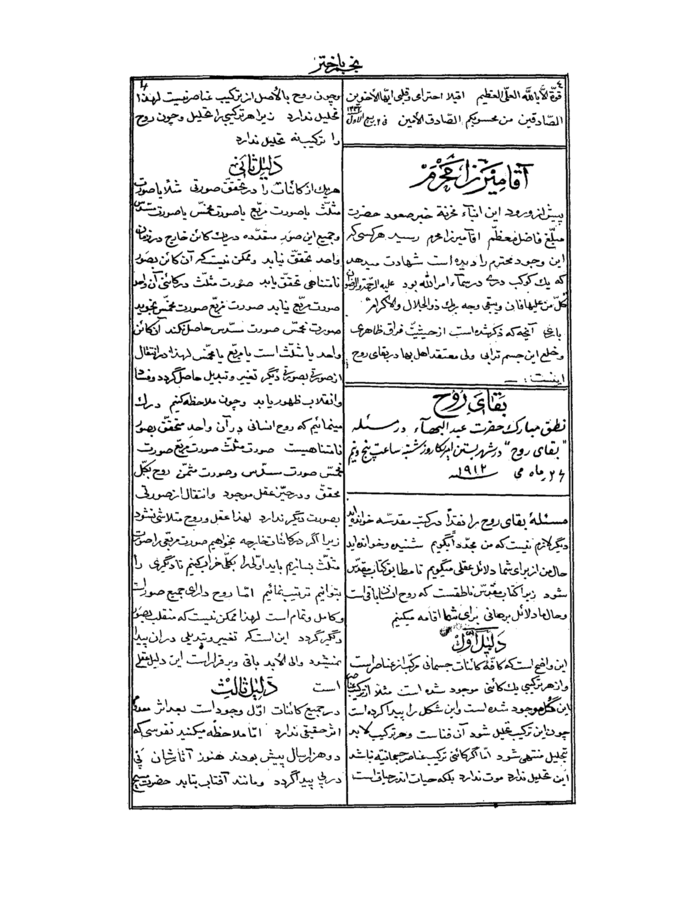 نجم باختر
٤
قوة الا بالله العلی العظیم اقبلا احترامی و قلبی ایها الأخوین
الصادقین من محسوبکم الصادق الأمین فی ٢ ربیع الاول
آقا میرزا محرم
پیش از ورود این انباء محزنة خبر صعود حضرت
مبلغ فاضل معظم اقا میرزا محرم رسید هر کسی که
این وجود محترم را دیده است شهادت میدهد
که یک کوکب دری در سماء امر الله بود علیه الرحمة و الرضوان
کل من علیها فان و یبقی وجه ربک ذو الجلال و الاکرام
باری آنچه که ذکر شده است از حیثیت فراق ظاهری
و خلع این جسم ترابی ولی معتقد اهل بها در بقای روح
اینست: —
بقای روح
نطق مبارک حضرت عبد البهآء در مسئله
"بقای روح" در شهر بستن امریکا روز شنبه ساعت پنج و نیم
٢٦ ماه می ١٩١٢
مسئله بقای روح را نقلاً در کتب مقدسه خوانده اید
دیگر لازم نیست که من مجدد آبگویم شنیده و خوانده اید
حال من از برای شما دلائل عقلی میگویم تا مطابق کتاب مقدس
شود زیرا کتاب مقدس ناطقست که روح انسانی باقی است
و حال ما دلائل برهانی برای شما اقامه میکنیم
دلیل اوّل
این واضح است که کافهٔ کائنات جسمانی مرکب از عناصر است
و از هر ترکیبی یک کائنی موجود شده است مثلا از ترکیب عناصر
این گل موجود شده است و این شکل را پیدا کرده است
چون این ترکیب تحلیل شود آن فناست و هر ترکیب لابد
بتحلیل منتهی شود اما اگر کائنی ترکیب عناصر جسمانیه نباشد
این تحلیل ندارد موت ندارد بلکه حیات اندر حیات است
و چون روح بالاصل از ترکیب عناصر نیست لهذا
تحلیل ندارد زیرا هر ترکیبی را تحلیل و چون روح
را ترکیب نه تحلیل ندارد
دلیل ثانی
هر یک از کائنات را در تحقق صورتی مثلا یا صورت
مثلث یا صورت مربع یا صورت مخمس یا صورت مسدس
و جمیع این صور متعدده در یک کائن خارج در زمان
واحد تحقق نیابد و ممکن نیست که آن کائن بصور
نامتناهی تحقق یابد صورت مثلث در کائنی آن واحد
صورت مربع نیابد صورت مربع صورت مخمس نجوید
صورت مخمس صورت مسدس حاصل نکند آن کائن
واحد یا مثلث است یا مربع یا مخمس لهذا در انتقال
از صورتی بصورتی دیگر تغییر و تبدیل حاصل گردد و فساد
و انقلاب ظهور یابد و چون ملاحظه کنیم درک
مینمائیم که روح انسانی در آن واحد متحقق بصور
نامتناهیست صورت مثلث صورت مربع صورت
مخمس صورت مسدس و صورت مثمن روح بکل
محقق و در حیّز عقل موجود و انتقال از صورتی
بصورت دیگر ندارد لهذا عقل و روح متلاشی نشود
زیرا اگر در کائنات خارجه بخواهیم صورت مربعی را صورت
مثلث بسازیم باید اولی را بکلی خراب کنیم تا دیگری را
بتوانیم ترتیب نمائیم امّا روح دارای جمیع صور است
و کامل و تمام است لهذا ممکن نیست که منقلب بصور
دیگر گردد این است که تغییر و تبدیلی در ان پیدا
نمیشود و الی الأبد باقی و برقرار است این دلیل عقلی
است
دلیل ثالث
در جمیع کائنات اوّل وجود است بعد اثر معدوم
اثر حقیقی ندارد امّا ملاحظه میکنید نفوسی که
دو هزار سال پیش بودند هنوز آثارشان پی
در پی پیدا گردد و مانند آفتاب بتابد حضرت مسیح